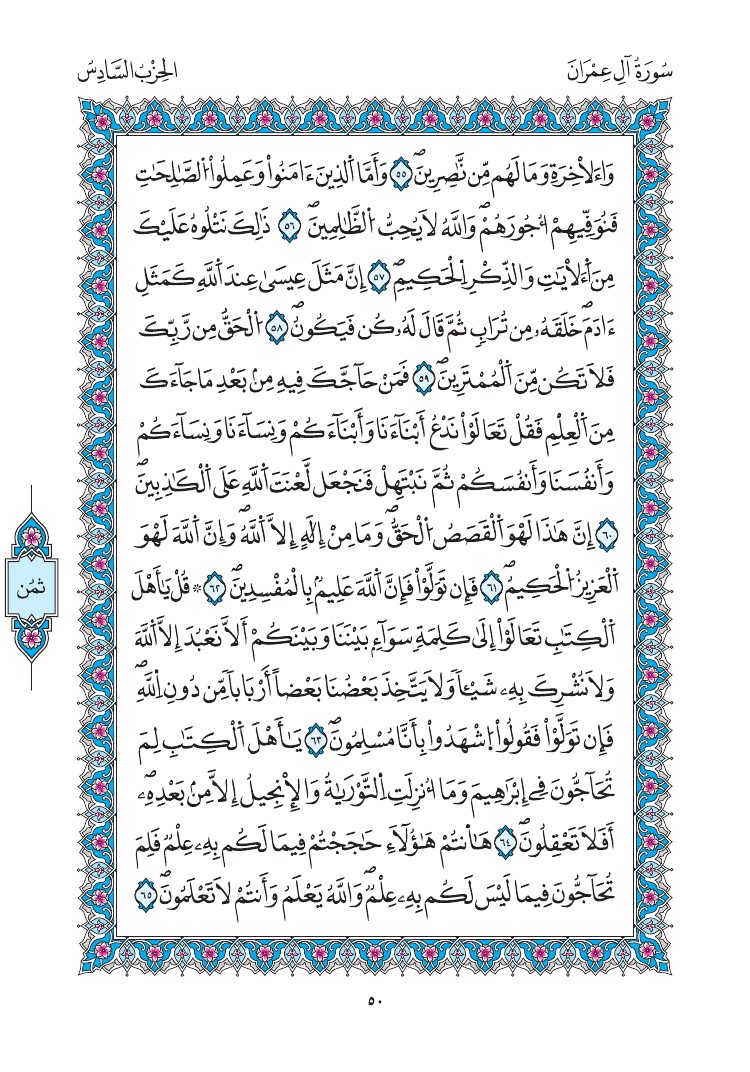 سُورَةُ آلِ عِمْرَانَ
الحِزْبُ السَّادِسُ
وَاءَلاْخِرَةِ وَمَا لَهُم مِّن نَّٰصِرِينَۖ ٥٥ وَأَمَّا اَ۬لذِينَ ءَامَنُواْ وَعَمِلُواْ اُ۬لصَّٰلِحَٰتِ
فَنُوَفِّيهِمْ أُجُورَهُمْۖ وَاللَّهُ لَا يُحِبُّ اُ۬لظَّٰلِمِينَۖ ٥٦ ذَٰلِكَ نَتْلُوهُ عَلَيْكَ
مِنَ اَ۬ءَلاْيَٰتِ وَالذِّكْرِ اِ۬لْحَكِيمِۖ ٥٧ إِنَّ مَثَلَ عِيسَىٰ عِندَ اَ۬للَّهِ كَمَثَلِ
ءَادَمَۖ خَلَقَهُۥ مِن تُرَابٖ ثُمَّ قَالَ لَهُۥ كُن فَيَكُونُۖ ٥٨ اُ۬لْحَقُّ مِن رَّبِّكَ
فَلَا تَكُن مِّنَ اَ۬لْمُمْتَرِينَۖ ٥٩ فَمَنْ حَآجَّكَ فِيهِ مِنۢ بَعْدِ مَا جَآءَكَ
مِنَ اَ۬لْعِلْمِ فَقُلْ تَعَالَوْاْ نَدْعُ أَبْنَآءَنَا وَأَبْنَآءَكُمْ وَنِسَآءَنَا وَنِسَآءَكُمْ
وَأَنفُسَنَا وَأَنفُسَكُمْ ثُمَّ نَبْتَهِلْ فَنَجْعَل لَّعْنَتَ اَ۬للَّهِ عَلَى اَ۬لْكَٰذِبِينَۖ
٦٠ إِنَّ هَٰذَا لَهُوَ اَ۬لْقَصَصُ اُ۬لْحَقُّۖ وَمَا مِنْ إِلَٰهٍ إِلَّا اَ۬للَّهُۖ وَإِنَّ اَ۬للَّهَ لَهُوَ
اَ۬لْعَزِيزُ اُ۬لْحَكِيمُۖ ٦١ فَإِن تَوَلَّوْاْ فَإِنَّ اَ۬للَّهَ عَلِيمُۢ بِالْمُفْسِدِينَۖ ٦٢ * قُلْ يَٰأَهْلَ
اَ۬لْكِتَٰبِ تَعَالَوْاْ إِلَىٰ كَلِمَةٖ سَوَآءِۢ بَيْنَنَا وَبَيْنَكُمْ أَلَّا نَعْبُدَ إِلَّا اَ۬للَّهَ
وَلَا نُشْرِكَ بِهِۦ شَيْـٔاٗ وَلَا يَتَّخِذَ بَعْضُنَا بَعْضاً أَرْبَاباٗ مِّن دُونِ اِ۬للَّهِۖ
فَإِن تَوَلَّوْاْ فَقُولُواْ اُ۪شْهَدُواْ بِأَنَّا مُسْلِمُونَۖ ٦٣ يَٰأَهْلَ اَ۬لْكِتَٰبِ لِمَ
تُحَآجُّونَ فِي إِبْرَٰهِيمَ وَمَا أُنزِلَتِ اِ۬لتَّوْرَيٰةُ وَالْإِنجِيلُ إِلَّا مِنۢ بَعْدِهِۦۖ
أَفَلَا تَعْقِلُونَۖ ٦٤ هَٰأَنتُمْ هَٰؤُلَآءِ حَٰجَجْتُمْ فِيمَا لَكُم بِهِۦ عِلْمٞ فَلِمَ
تُحَآجُّونَ فِيمَا لَيْسَ لَكُم بِهِۦ عِلْمٞۖ وَاللَّهُ يَعْلَمُ وَأَنتُمْ لَا تَعْلَمُونَۖ ٦٥
ثمُن
٥٠